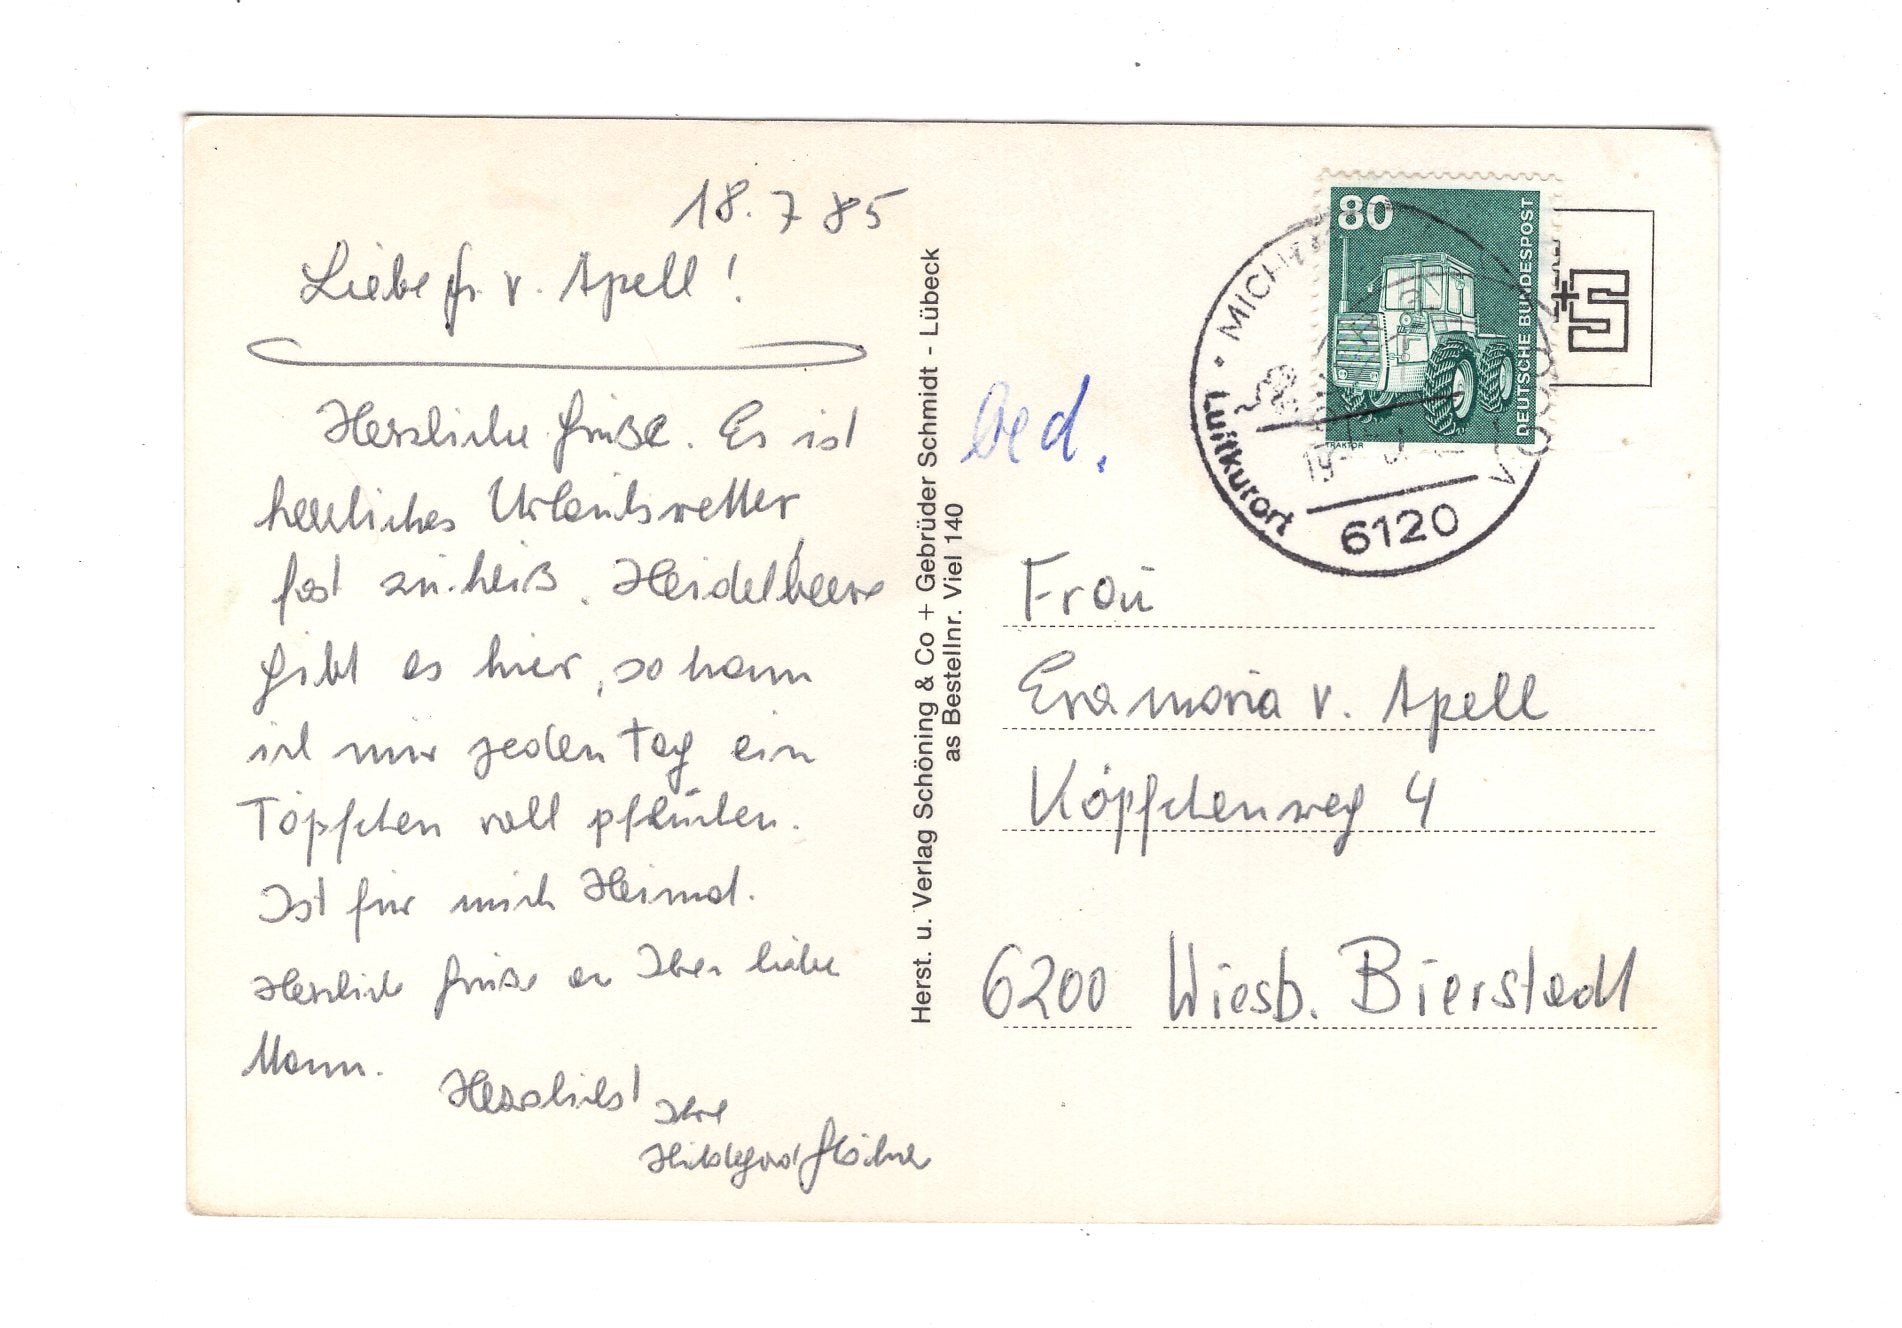 18. 7 85
Liebe Fr. v. Apell!
Herzliche Grüße. Es ist
herrliches Urlaubswetter
fast zu heiß. Heidelbeere
gibt es hier, so kann
ich mir jeden Tag ein
Töpfchen voll pflücken.
Ist für mich Heimat.
Herzliche Grüße an Ihren lieben
Mann.
Herzlichst Ihre
Hildegard
Herst. u. Verlag Schöning & Co + Gebrüder Schmidt - Lübeck
as Bestellnr. Viel 140
bed.
80
DEUTSCHE BUNDESPOST
TRAKTOR
Luftkurort
6120
Frau
Evamaria v. Apell
Köpfchenweg 4
6200 Wiesb. Bierstadt